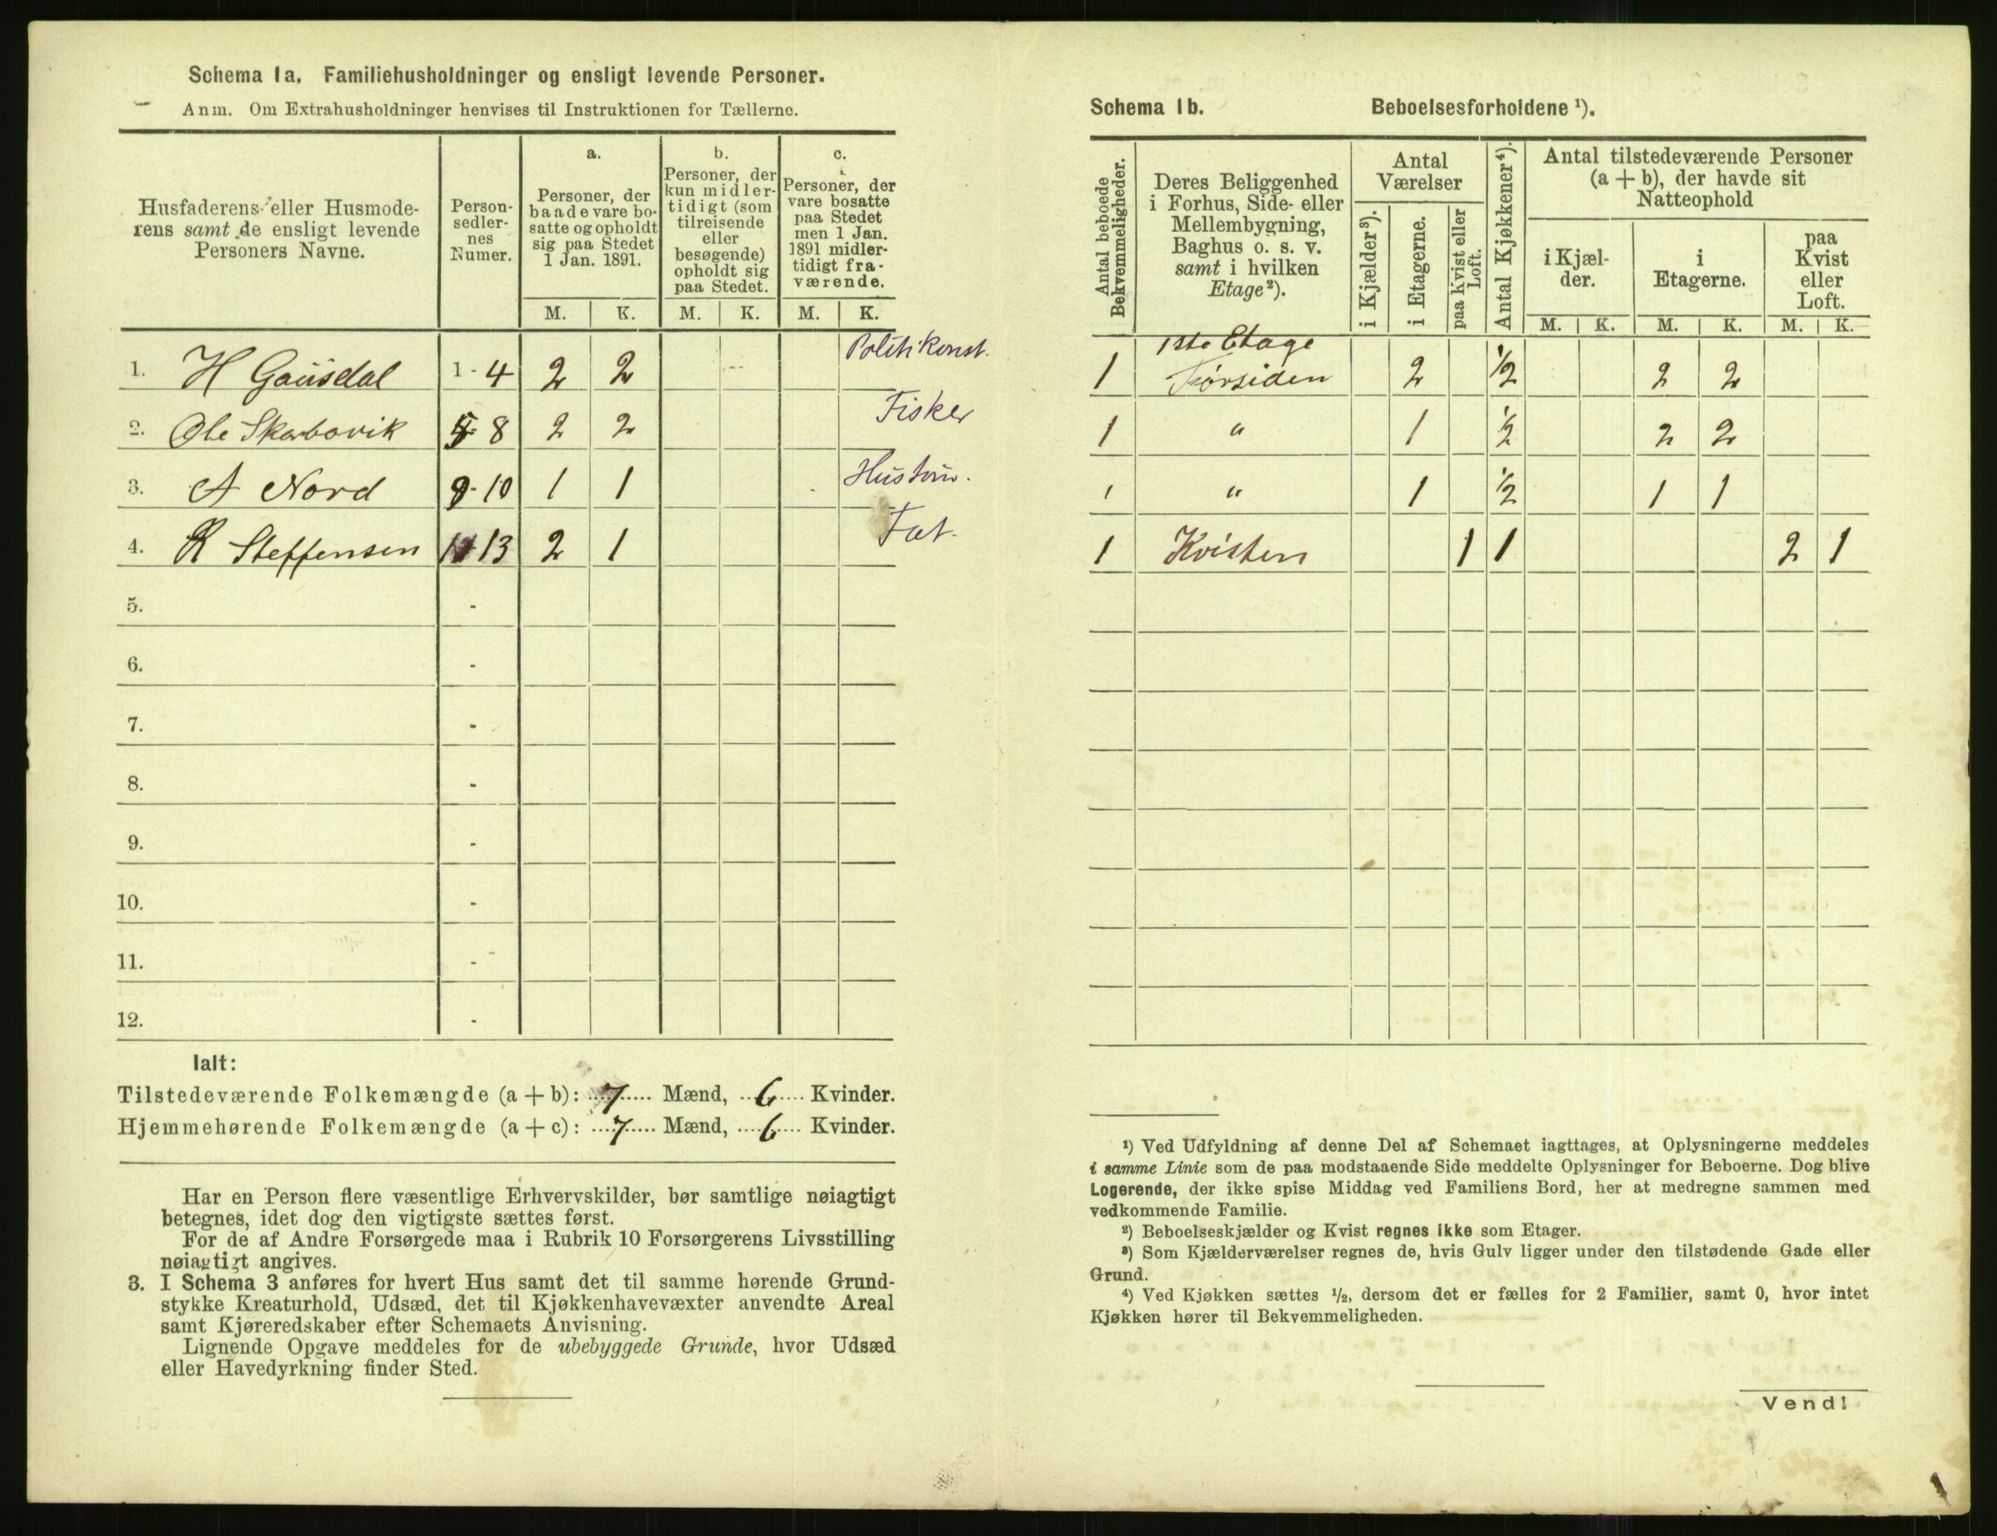 Schema 1a. Familiehusholdninger og ensligt levende Personer.
Anm. Om Extrahusholdninger henvises til Instruktionen for Tællerne.
Husfaderens eller Husmoderens samt de ensligt levende Personers Navne.
Personsedlernes Numer.
a.
Personer, der baade vare bosatte og opholdt sig paa Stedet 1 Jan. 1891.
b.
Personer, der kun midlertidigt (som tilreisende eller besøgende) opholdt sig paa Stedet.
c.
Personer, der vare bosatte paa Stedet men 1 Jan. 1891 midlertidigt fraværende.
M. K. M. K. M. K.
1. H Gausdal 1 - 4 2 2 Politikonst.
2. Ole Skarbovik 5 - 8 2 2 Fisker
3. A Nord 9 - 10 1 1
4. R Steffensen 11 13 2 1
5. -
6. -
7. -
8. -
9. -
10. -
11. -
12. -
Ialt:
Tilstedeværende Folkemængde (a + b): 7 Mænd, 6 Kvinder.
Hjemmehørende Folkemængde (a + c): 7 Mænd, 6 Kvinder.
Har en Person flere væsentlige Erhvervskilder, bør samtlige nøiagtigt
betegnes, idet dog den vigtigste sættes først.
For de af Andre Forsørgede maa i Rubrik 10 Forsørgerens Livsstilling
nøiagtigt angives.
3. I Schema 3 anføres for hvert Hus samt det til samme hørende Grund-
stykke Kreaturhold, Udsæd, det til Kjøkkenhavevæxter anvendte Areal
samt Kjøreredskaber efter Schemaets Anvisning.
Lignende Opgave meddeles for de ubebyggede Grunde, hvor Udsæd
eller Havedyrkning finder Sted.
Schema 1b. Beboelsesforholdene ¹).
Antal beboede Bekvemmeligheder.
Deres Beliggenhed i Forhus, Side- eller Mellembygning, Baghus o. s. v. samt i hvilken Etage²).
Antal Værelser
i Kjælder³).
i Etagerne.
paa Kvist eller Loft.
Antal Kjøkkener⁴).
Antal tilstedeværende Personer (a + b), der havde sit Natteophold
i Kjælder.
i Etagerne.
paa Kvist eller Loft.
M. K. M. K. M. K.
1 1ste Etage Forsiden 2 ½ 2 2
1 " 1 ½ 2 2
1 " 1 ½ 1 1
1 Kvisten 1 1 2 1
¹) Ved Udfyldning af denne Del af Schemaet iagttages, at Oplysningerne meddeles
i samme Linie som de paa modstaaende Side meddelte Oplysninger for Beboerne. Dog blive
Logerende, der ikke spise Middag ved Familiens Bord, her at medregne sammen med
vedkommende Familie.
²) Beboelseskjælder og Kvist regnes ikke som Etager.
³) Som Kjælderværelser regnes de, hvis Gulv ligger under den tilstødende Gade eller
Grund.
⁴) Ved Kjøkken sættes ½, dersom det er fælles for 2 Familier, samt 0, hvor intet
Kjøkken hører til Bekvemmeligheden.
Vend!